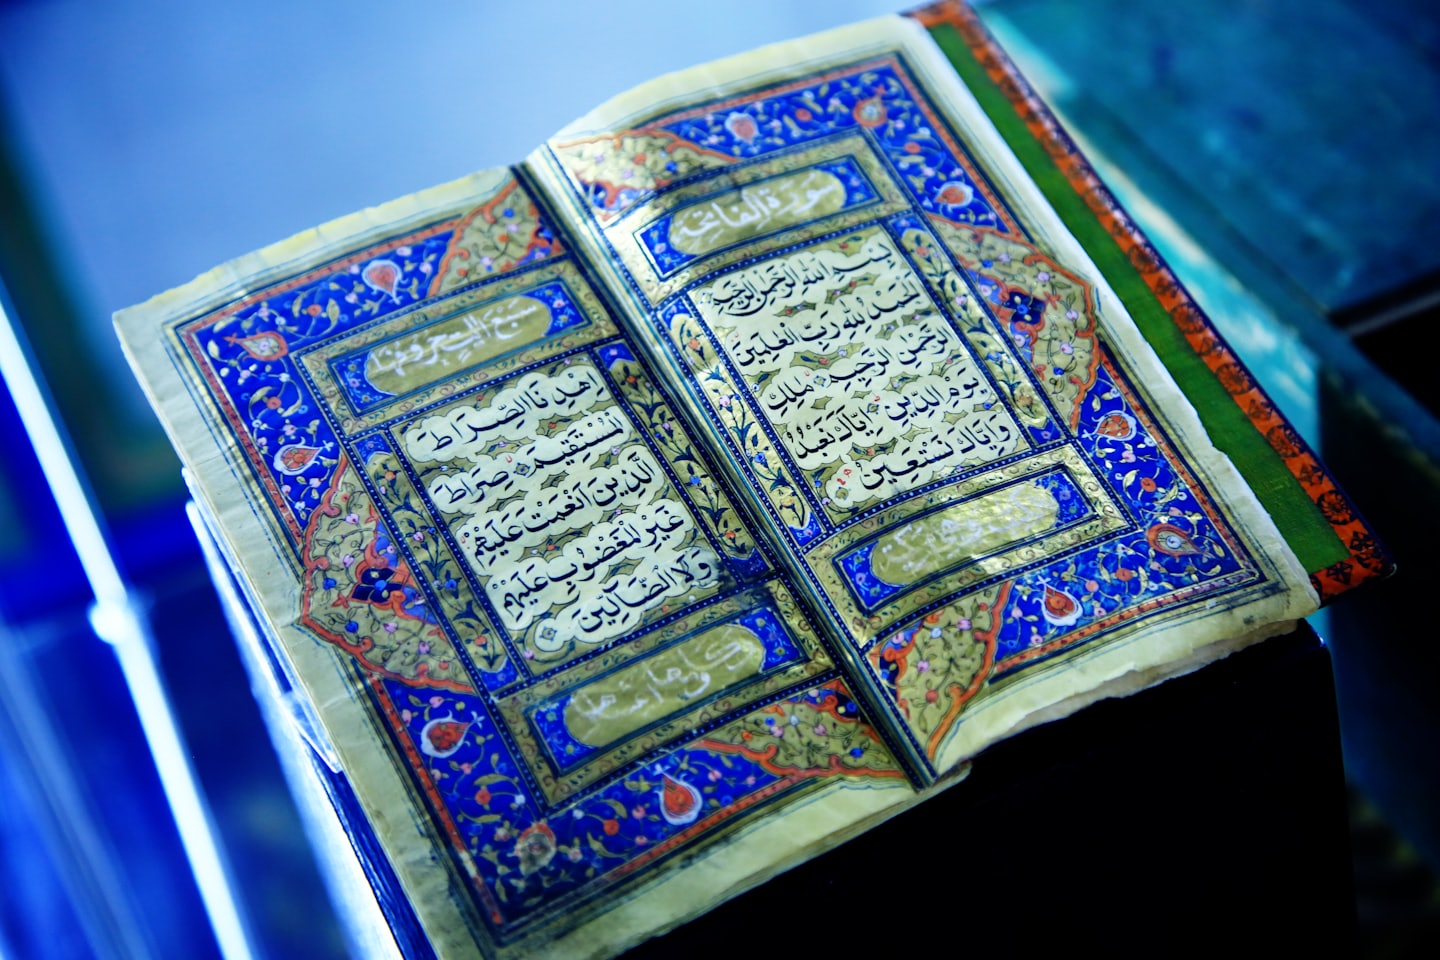 سورة الفاتحة
بسم الله الرحمن الرحيم
الحمد لله رب العلمين
الرحمن الرحيم ملك
يوم الدين اياك نعبد
واياك نستعين
سبع ايات حروفها
اهدنا الصراط
المستقيم صراط
الذين انعمت عليهم
غير المغضوب عليهم
ولا الضالين